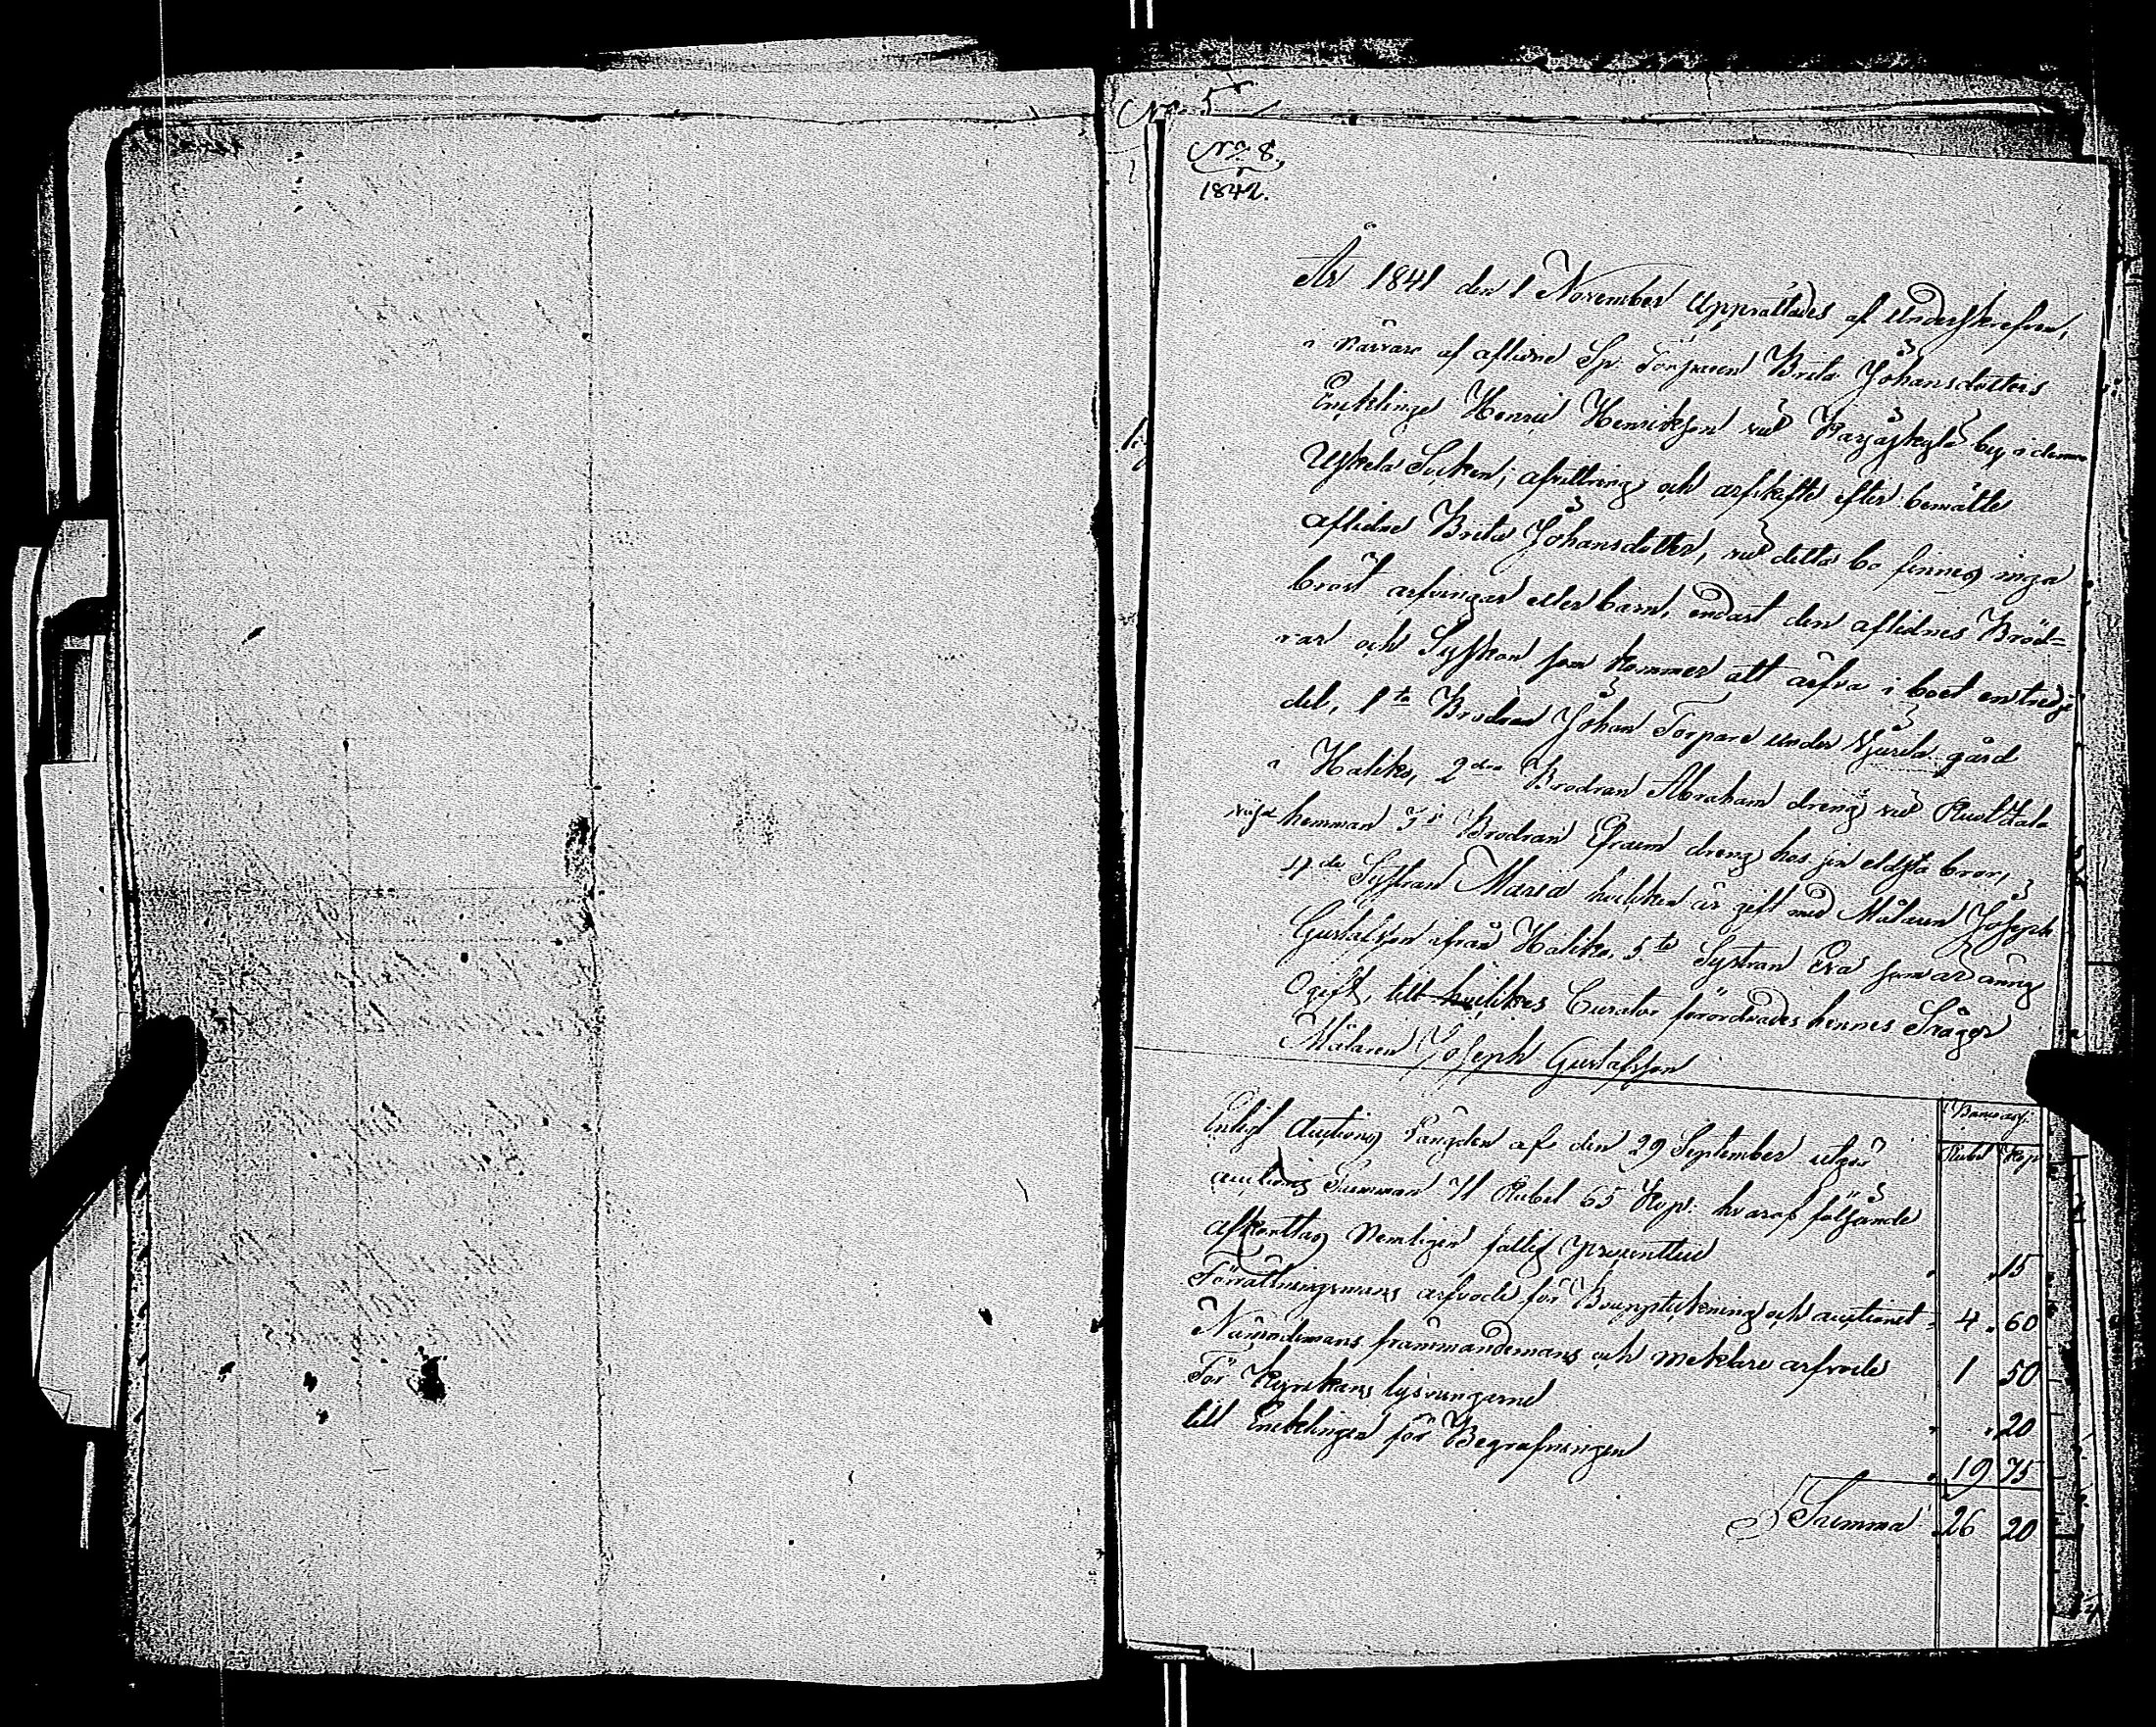 No 5
No 8.
1842.
År 1841 den 1 November upprättades af Underskrefven,
i närvaro af aflidne Sp. Torparen Brita Johansdotters
Enklinge Henric Henriksson vid Karjaskylä by i denne
Uskela Socken, afvittring och arfskifte efter bemälte
aflidne Brita Johansdotter, vid detta bo finnes inga
bröst arfvingar eller barn, endast den aflidnes Bröd-
rar och Sysskon som kommer att ärfva i boet en tredje
del, 1ta Brodren Johan Torpare under Wiurila gård
i Haliko, 2dra Brodran Abraham dreng vid
hemman 3e Brodran Efraim dreng hos sin eldsta bror,
4de Systran Maria hvilken är gift med Målaren Joseph
Gustafsson ifrån Haliko, 5te Systran Eva som är ännu
Ogift, till hvilkes Curator förordnades hennes Svåger
Målaren Joseph Gustafsson
Rubel Kop
Enligt Auctions Längden af den 29 September utgör
auctions Summan 71 Rubel 65 Kop. hvaraf följande
afkortas Nemligen fattig procenten " 15
Förrättningsmans arfvode för Bouppteckning och auctionet 4 60
Nämndemans främmandemans och meklare arfvode 1 50
För Kyrkans lysningarne " 20
till Enklingen för Begrafningen 19 75
Summa 26 20